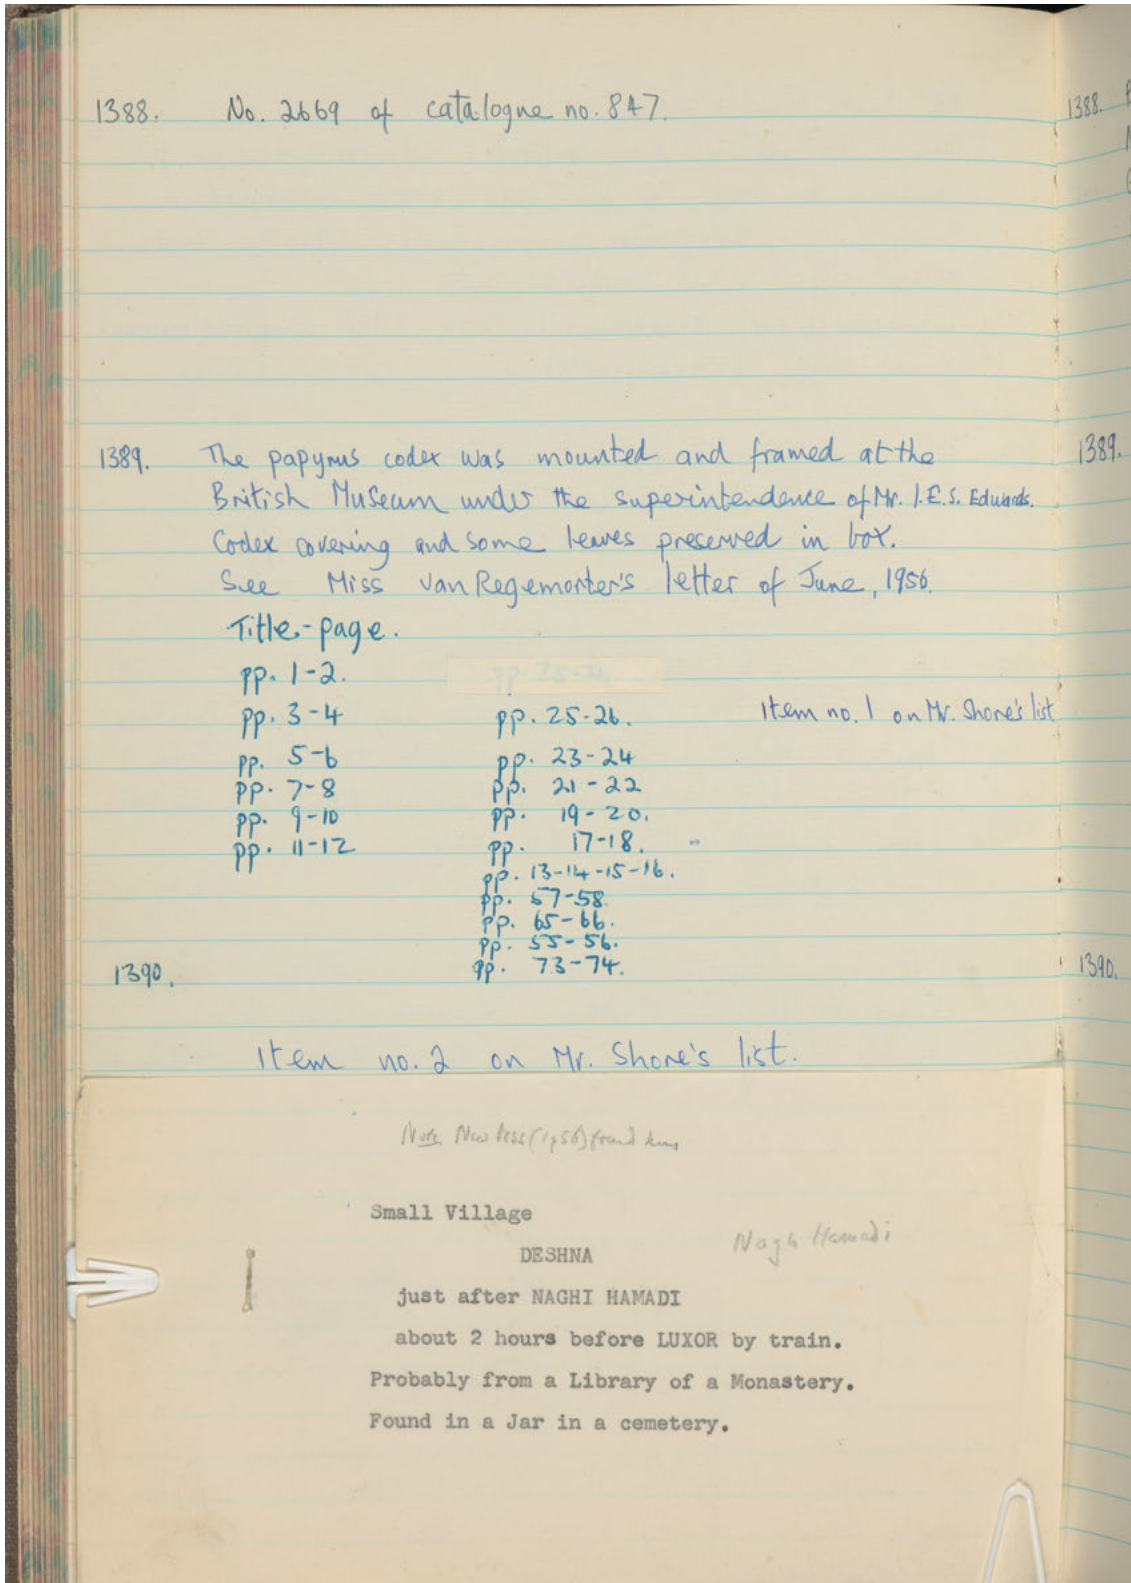 1388. No. 2669 of catalogue no. 847.
1388.
1389. The papyrus codex was mounted and framed at the
British Museum under the superintendence of Mr. I.E.S. Edwards.
Codex covering and some leaves preserved in box.
See Miss van Regemorter's letter of June, 1956.
Title-page.
pp. 1-2.
pp. 3-4 pp. 25-26. Item no. 1 on Mr. Shore's list
pp. 5-6 pp. 23-24
pp. 7-8 pp. 21-22
pp. 9-10 pp. 19-20.
pp. 11-12 pp. 17-18.
pp. 13-14-15-16.
pp. 57-58.
pp. 65-66.
pp. 55-56.
1390. pp. 73-74.
Item no. 2 on Mr. Shore's list.
1389.
1390.
Note (1956) found
Small Village
DESHNA
Nagh Hamadi
just after NAGHI HAMADI
about 2 hours before LUXOR by train.
Probably from a Library of a Monastery.
Found in a Jar in a cemetery.